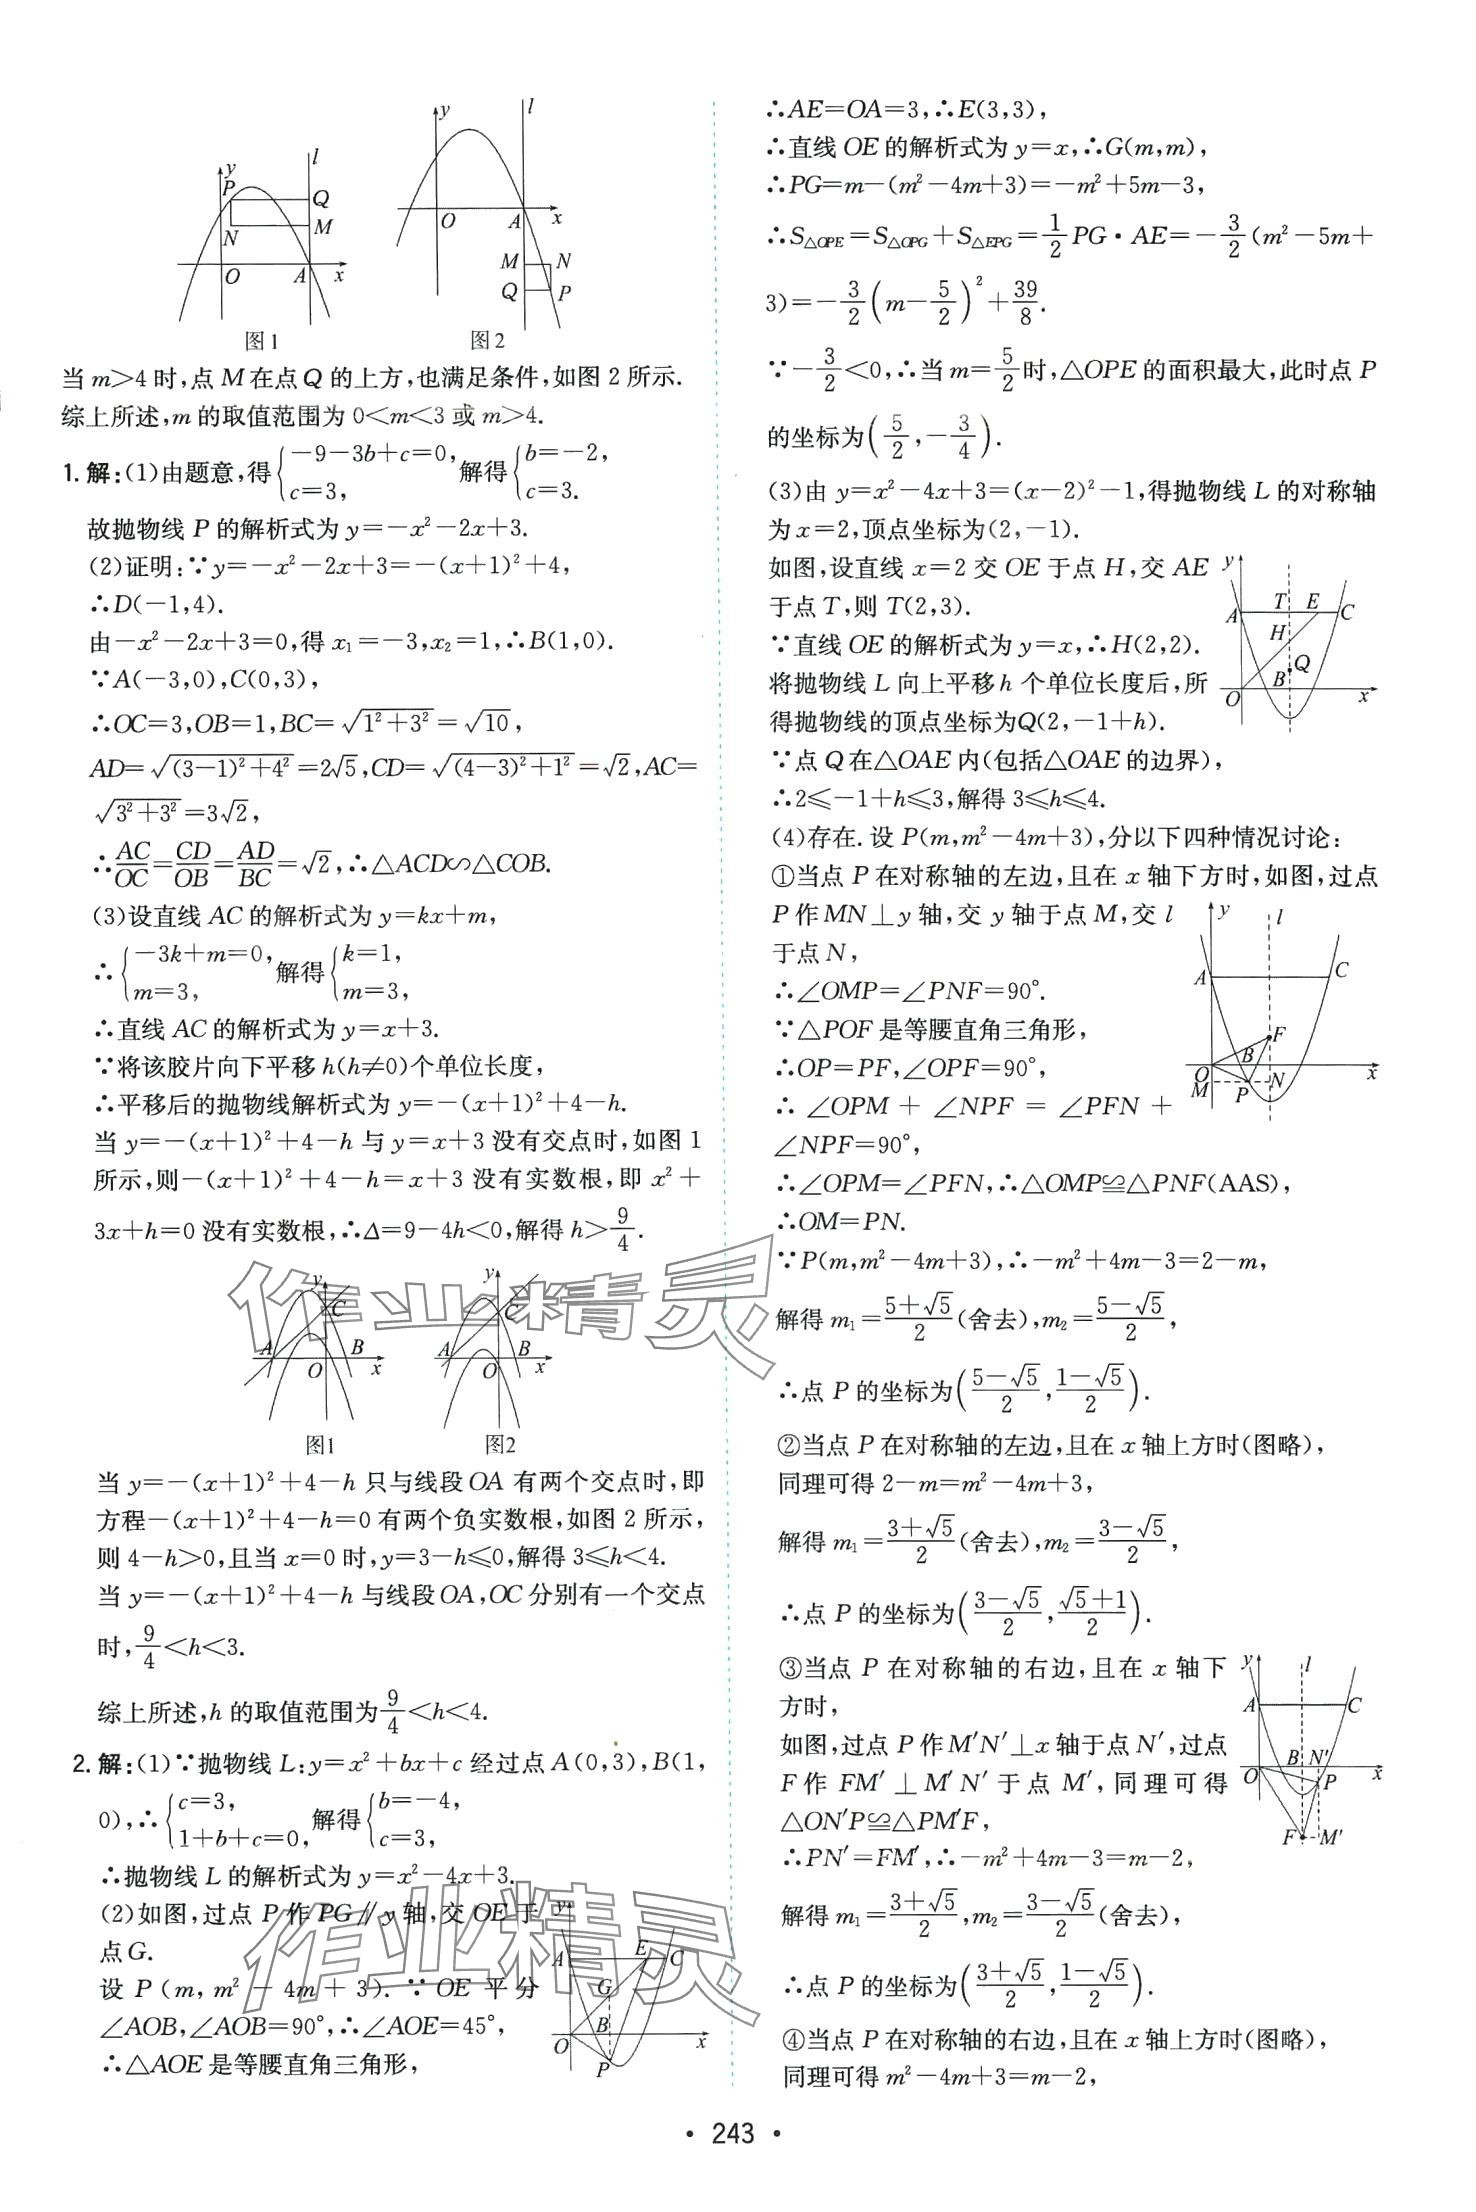 y
l
P
Q
N
M
O
A
x
图1
y
l
O
A
x
M
N
Q
P
图2
当 m>4 时,点 M 在点 Q 的上方,也满足条件,如图 2 所示.
综上所述,m 的取值范围为 0<m<3 或 m>4.
1. 解:(1)由题意,得{-9-3b+c=0, c=3, 解得{b=-2, c=3.
故抛物线 P 的解析式为 y=-x²-2x+3.
(2)证明:∵y=-x²-2x+3=-(x+1)²+4,
∴D(-1,4).
由-x²-2x+3=0,得 x₁=-3,x₂=1,∴B(1,0).
∵A(-3,0),C(0,3),
∴OC=3,OB=1,BC=√(1²+3²)=√10,
AD=√((3-1)²+4²)=2√5,CD=√((4-3)²+1²)=√2,AC=
√(3²+3²)=3√2,
∴AC/OC=CD/OB=AD/BC=√2,∴△ACD∽△COB.
(3)设直线 AC 的解析式为 y=kx+m,
∴{-3k+m=0, m=3, 解得{k=1, m=3,
∴直线 AC 的解析式为 y=x+3.
∵将该胶片向下平移 h(h≠0)个单位长度,
∴平移后的抛物线解析式为 y=-(x+1)²+4-h.
当 y=-(x+1)²+4-h 与 y=x+3 没有交点时,如图 1
所示,则-(x+1)²+4-h=x+3 没有实数根,即 x²+
3x+h=0 没有实数根,∴Δ=9-4h<0,解得 h>9/4.
y
C
A
O
B
x
图1
y
C
A
O
B
x
图2
当 y=-(x+1)²+4-h 只与线段 OA 有两个交点时,即
方程-(x+1)²+4-h=0 有两个负实数根,如图 2 所示,
则 4-h>0,且当 x=0 时,y=3-h≤0,解得 3≤h<4.
当 y=-(x+1)²+4-h 与线段 OA,OC 分别有一个交点
时,9/4<h<3.
综上所述,h 的取值范围为9/4<h<4.
2. 解:(1)∵抛物线 L:y=x²+bx+c 经过点 A(0,3),B(1,
0),∴{c=3, 1+b+c=0, 解得{b=-4, c=3,
∴抛物线 L 的解析式为 y=x²-4x+3.
(2)如图,过点 P 作 PG∥y 轴,交 OE 于
点 G.
设 P(m,m²-4m+3).∵OE 平分
∠AOB,∠AOB=90°,∴∠AOE=45°,
∴△AOE 是等腰直角三角形,
y
A
E
C
G
O
B
x
P
∴AE=OA=3,∴E(3,3),
∴直线 OE 的解析式为 y=x,∴G(m,m),
∴PG=m-(m²-4m+3)=-m²+5m-3,
∴S△OPE=S△OPG+S△EPG=1/2 PG·AE=-3/2(m²-5m+
3)=-3/2(m-5/2)²+39/8.
∵-3/2<0,∴当 m=5/2时,△OPE 的面积最大,此时点 P
的坐标为(5/2,-3/4).
(3)由 y=x²-4x+3=(x-2)²-1,得抛物线 L 的对称轴
为 x=2,顶点坐标为(2,-1).
如图,设直线 x=2 交 OE 于点 H,交 AE
于点 T,则 T(2,3).
∵直线 OE 的解析式为 y=x,∴H(2,2).
将抛物线 L 向上平移 h 个单位长度后,所
得抛物线的顶点坐标为Q(2,-1+h).
∵点 Q 在△OAE 内(包括△OAE 的边界),
∴2≤-1+h≤3,解得 3≤h≤4.
y
A
T
E
C
H
Q
B
O
x
(4)存在. 设 P(m,m²-4m+3),分以下四种情况讨论:
①当点 P 在对称轴的左边,且在 x 轴下方时,如图,过点
P 作 MN⊥y 轴,交 y 轴于点 M,交 l
于点 N,
∴∠OMP=∠PNF=90°.
∵△POF 是等腰直角三角形,
∴OP=PF,∠OPF=90°,
∴∠OPM+∠NPF=∠PFN+
∠NPF=90°,
∴∠OPM=∠PFN,∴△OMP≌△PNF(AAS),
∴OM=PN.
y
l
A
C
F
B
O
x
M
P
N
∵P(m,m²-4m+3),∴-m²+4m-3=2-m,
解得 m₁=(5+√5)/2(舍去),m₂=(5-√5)/2,
∴点 P 的坐标为((5-√5)/2,(1-√5)/2).
②当点 P 在对称轴的左边,且在 x 轴上方时(图略),
同理可得 2-m=m²-4m+3,
解得 m₁=(3+√5)/2(舍去),m₂=(3-√5)/2,
∴点 P 的坐标为((3-√5)/2,(√5+1)/2).
③当点 P 在对称轴的右边,且在 x 轴下
方时,
如图,过点 P 作 M′N′⊥x 轴于点 N′,过点
F 作 FM′⊥M′N′于点 M′,同理可得
△ON′P≌△PM′F,
∴PN′=FM′,∴-m²+4m-3=m-2,
y
l
A
C
B
N′
O
x
P
F
M′
解得 m₁=(3+√5)/2,m₂=(3-√5)/2(舍去),
∴点 P 的坐标为((3+√5)/2,(1-√5)/2).
④当点 P 在对称轴的右边,且在 x 轴上方时(图略),
同理可得 m²-4m+3=m-2,
作业精灵
作业精灵
• 243 •